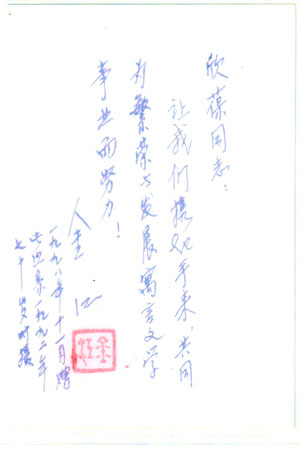 欣葆同志：
让我们携起手来，共同
为繁荣与发展寓言文学
事业而努力！
金江
一九九八年十一月赠
此照系一九九二年
七十岁时摄
金江